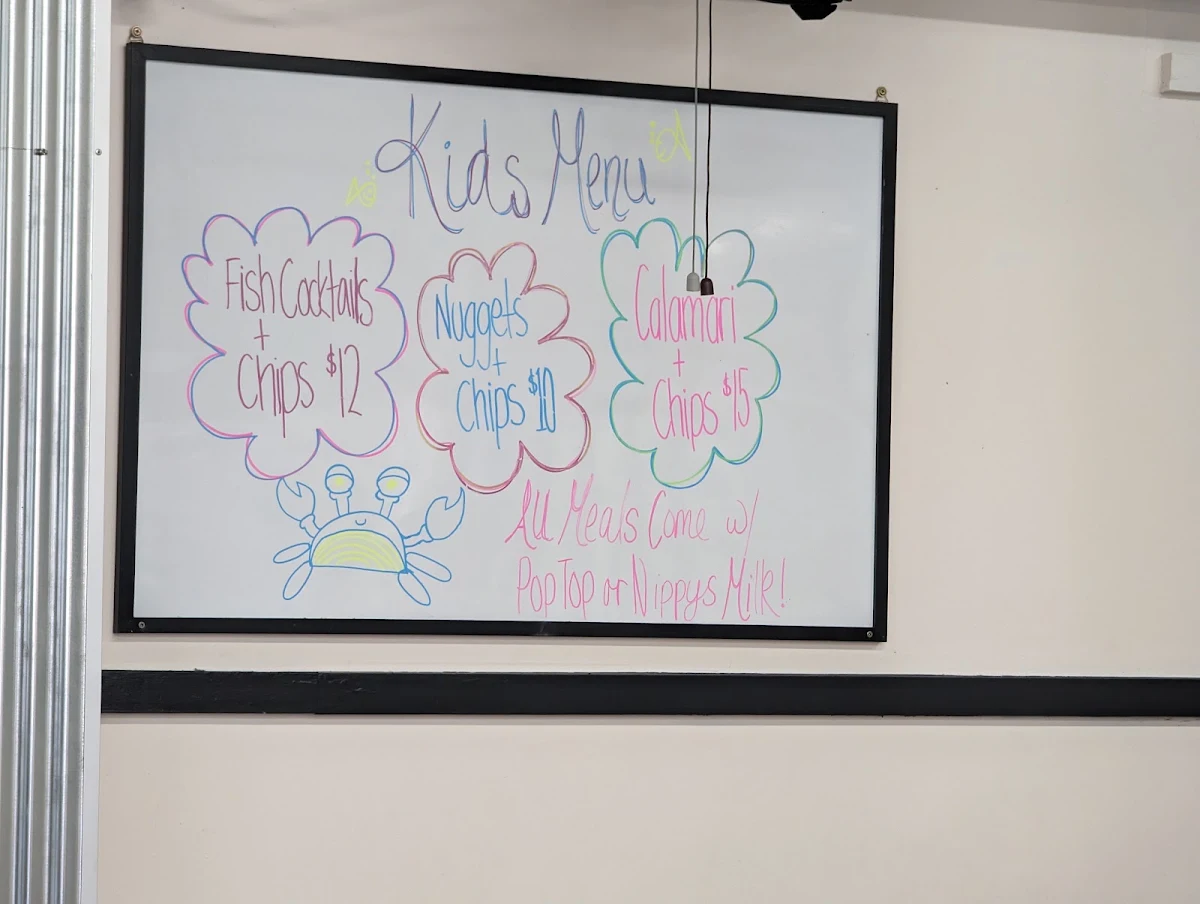 Kids Menu
Fish Cocktails
+
Chips $12
Nuggets
+
Chips $10
Calamari
+
Chips $15
All Meals Come w/
Pop Top or Nippys Milk!